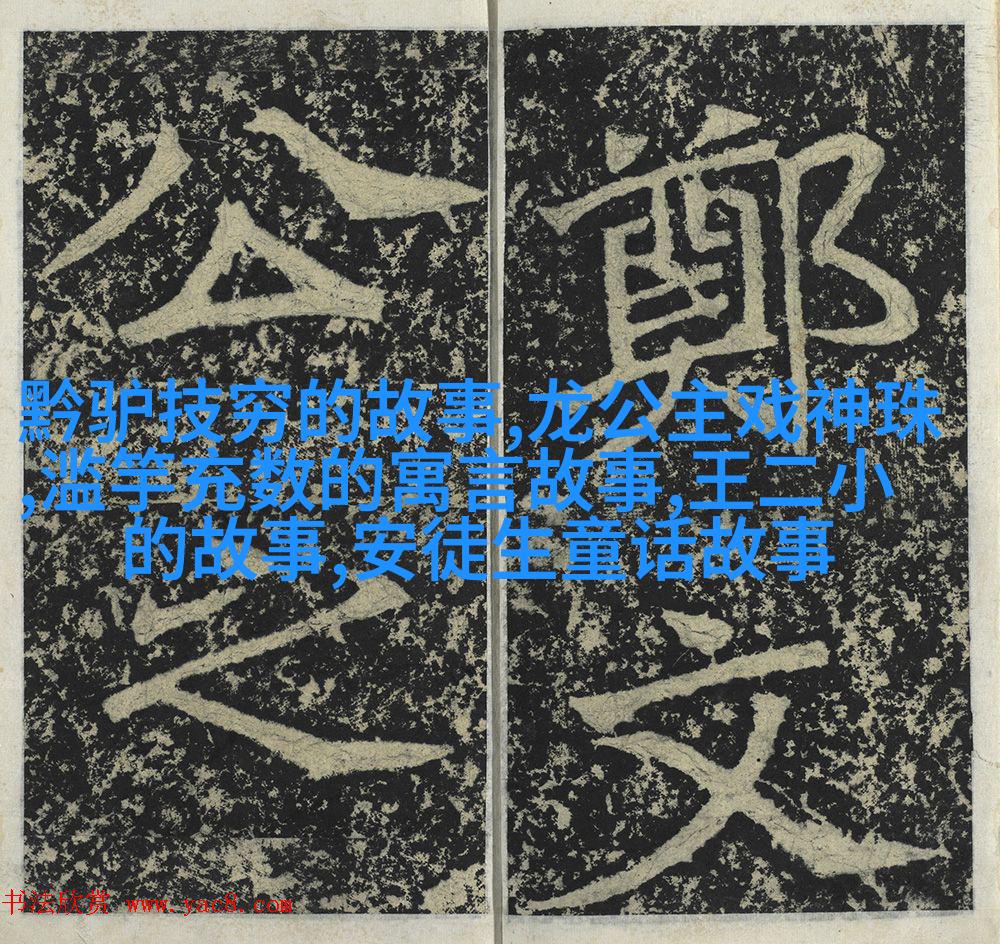 鄭文
公之
黔驴技穷的故事,龙公主戏神珠
,滥竽充数的寓言故事,王二小
的故事,安徒生童话故事
书法欣赏 www.yac8.com